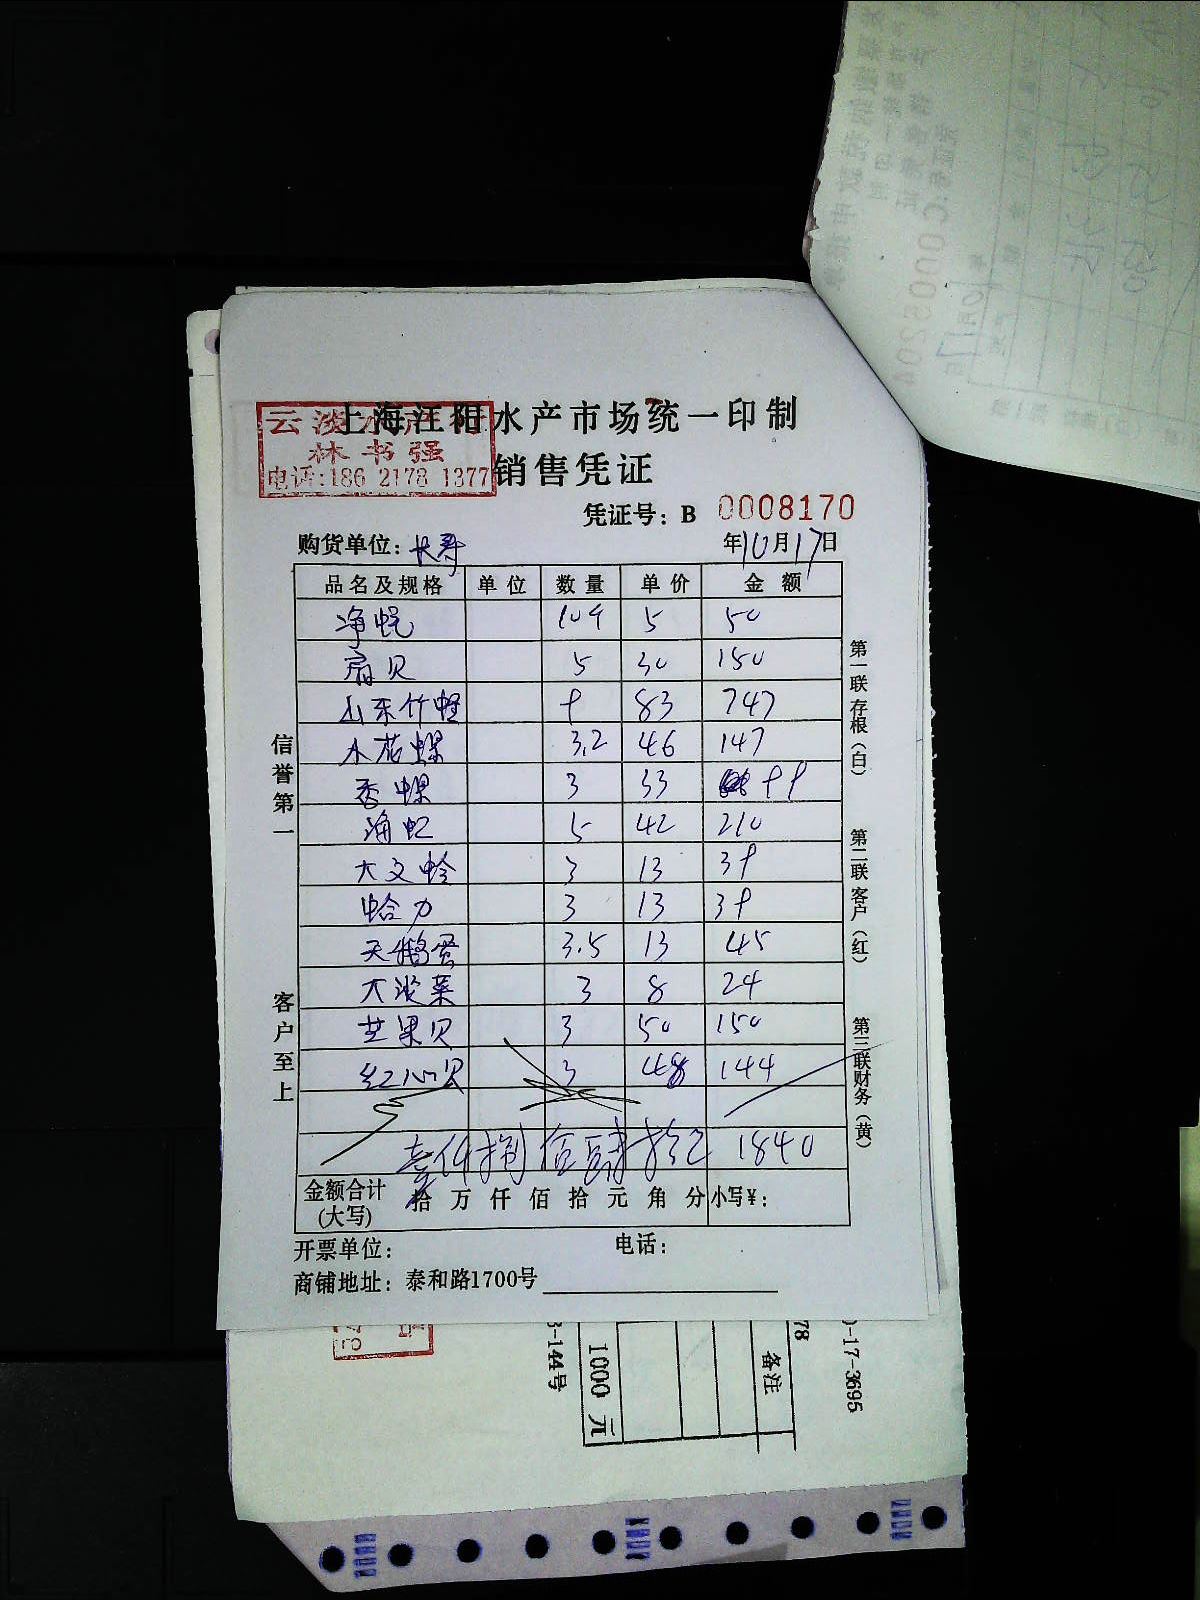 上海江阳水产市场统一印制
云淡水产行
林书强
电话:186 2178 1377
销售凭证
凭证号: B 0008170
购货单位: 大哥 年10月17日
品名及规格 单位 数量 单价 金额
净蚬 109 5 50
扇贝 5 30 150
山东竹蛏 9 83 747
小花螺 3.2 46 147
香螺 3 33 99
海虹 5 42 210
大文蛤 3 13 39
蛤力 3 13 39
天鹅蛋 3.5 13 45
大淡菜 3 8 24
芒果贝 3 50 150
红心贝 3 48 144
壹仟捌佰肆拾元 1840
金额合计(大写) 拾万仟佰拾元角分 小写¥:
开票单位: 电话:
商铺地址: 泰和路1700号
信誉第一
客户至上
第一联 存根(白)
第二联 客户(红)
第三联 财务(黄)
3-144号
1000 元
备注
78
-17-3695